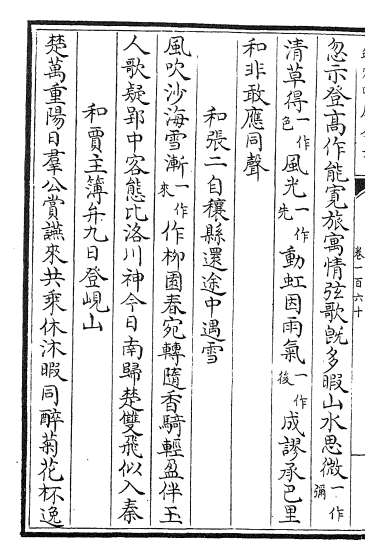 卷一百六十
忽示登高作能寬旅寓情弦歌既多暇山水思微一作彌
清草得一作色風光一作先動虹因雨氣一作後成謬承巴里
和非敢應同聲
和張二自穰縣還途中遇雪
風吹沙海雪漸一作來作柳園春宛轉隨香騎輕盈伴玉
人歌疑郢中客態比洛川神今日南歸楚雙飛似入秦
和賈主簿弁九日登峴山
楚萬重陽日羣公賞讌來共乘休沐暇同醉菊花杯逸